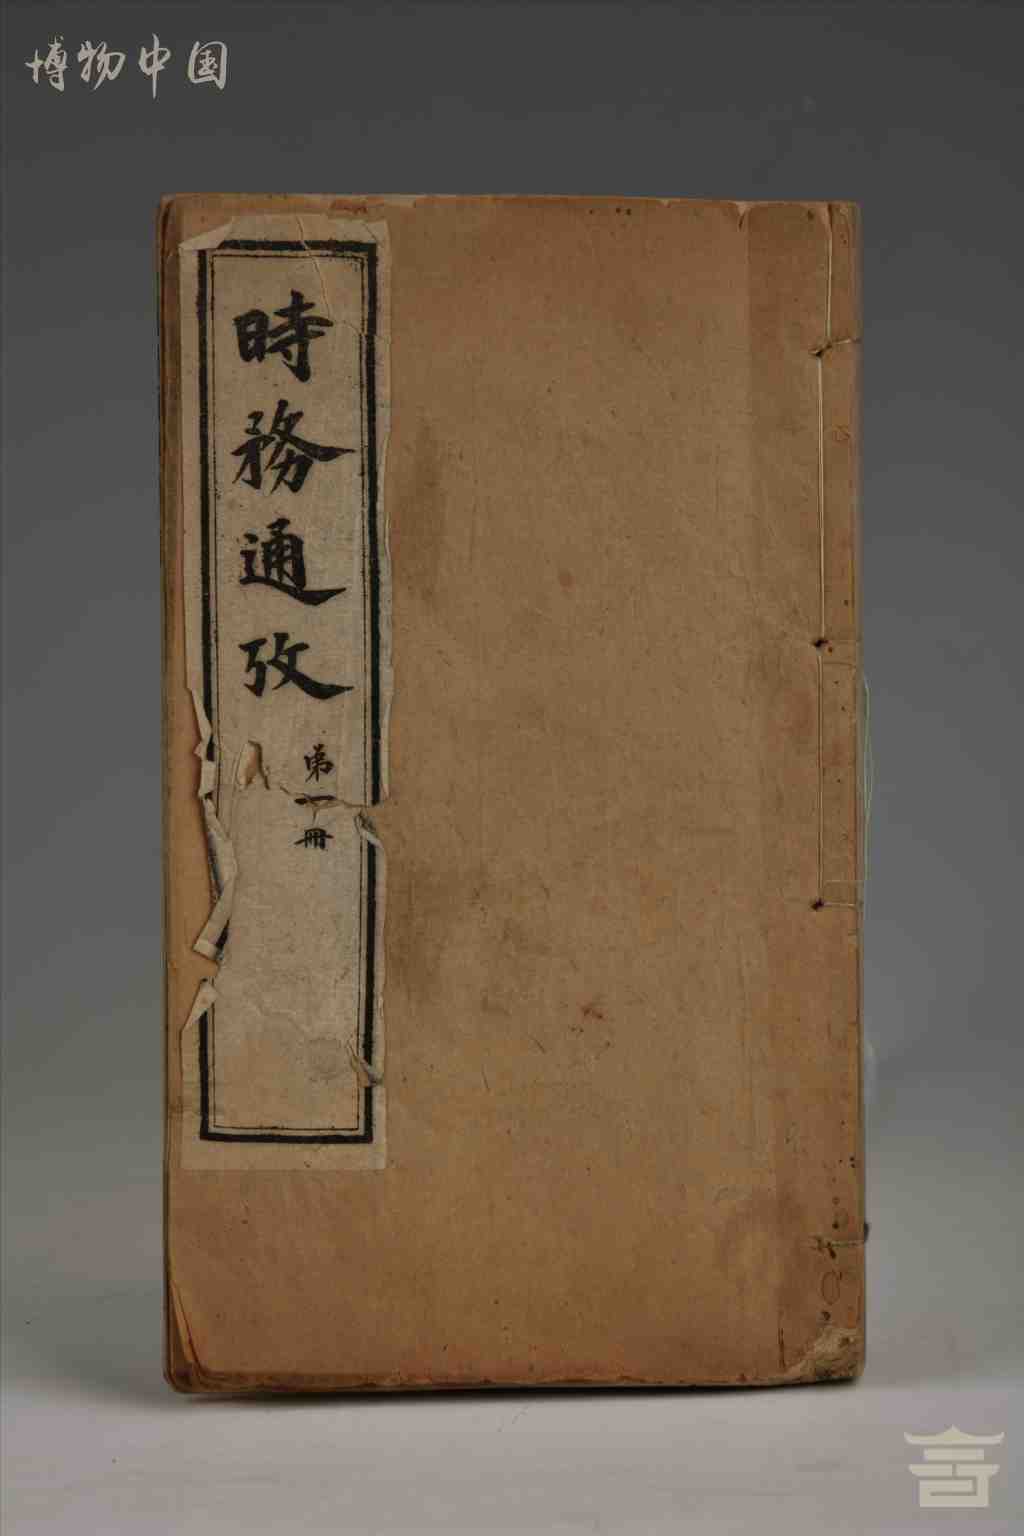 博物中国
時務通攷
第一冊